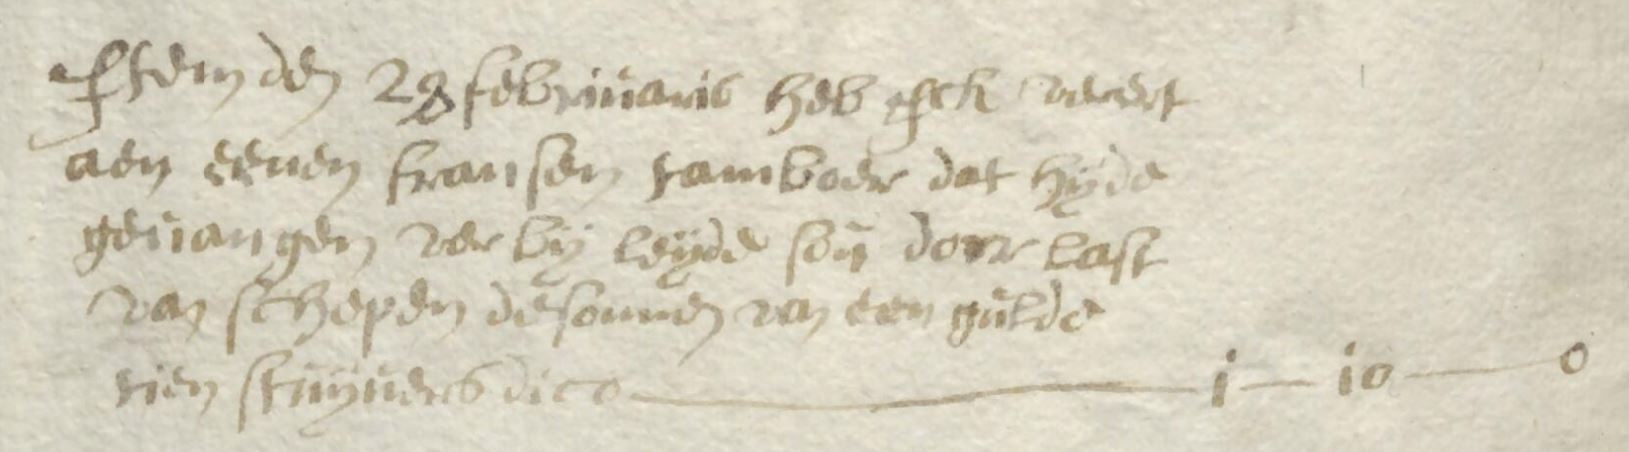 Item den 28 februaris heb Ick vereert
aen eenen fransen tamboer dat hy de
gevangen verby leyde sou door last
van schepen de somme van een gulde
tien stuyvers dico i — io — o